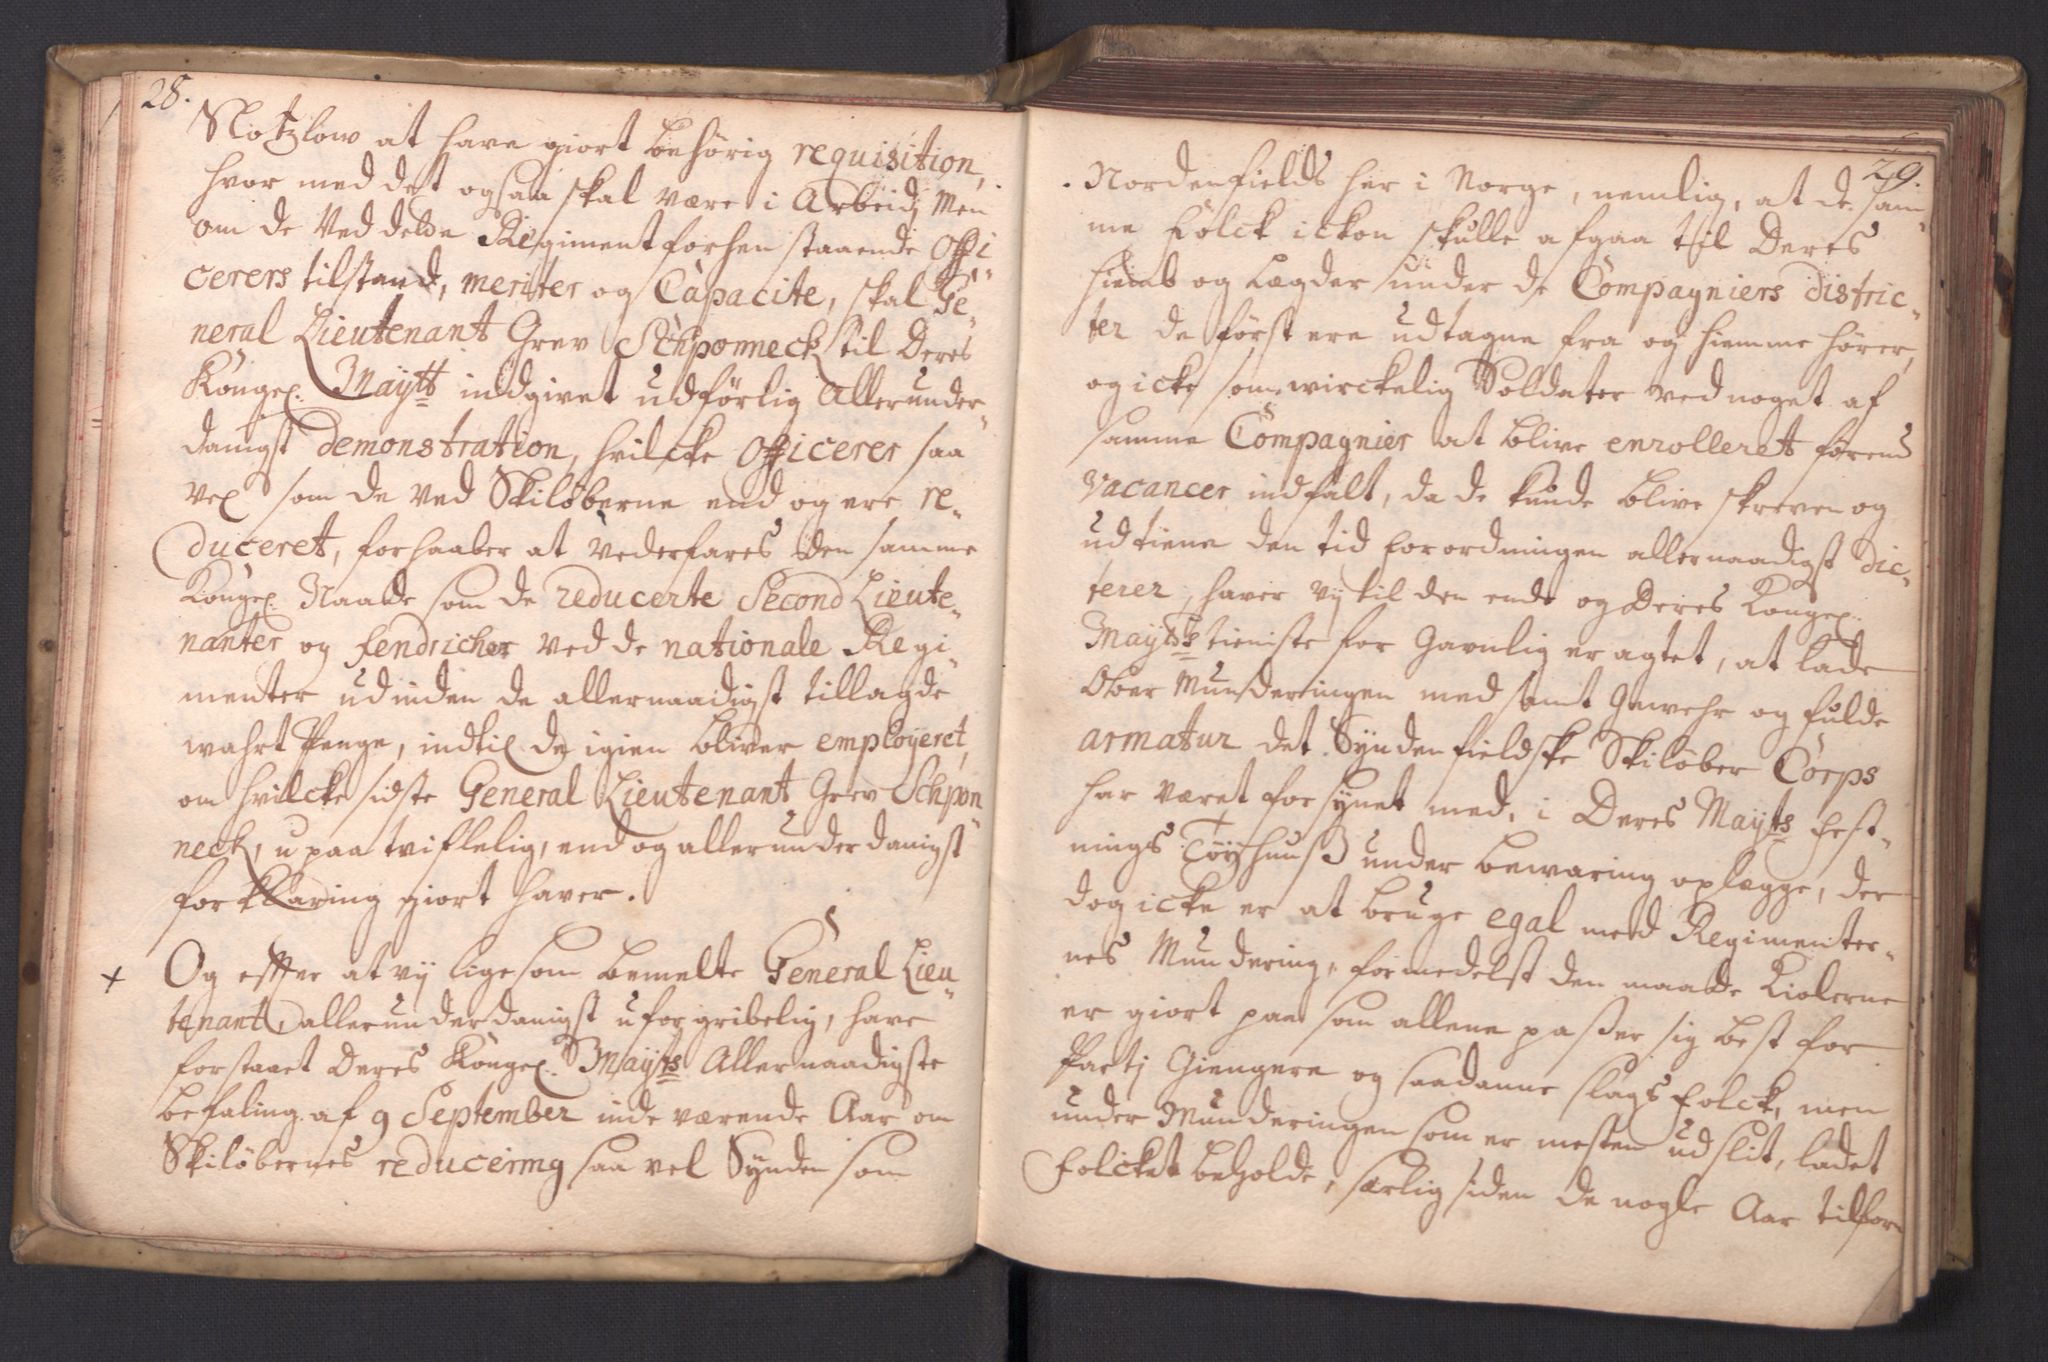 28.
Slotzlow at have giort behörig requisition,
hvor med det ogsaa skal være i Arbeid; Men
om de Ved delde Regiment forhen staaende Offi„
cerers tilstand, meriter og Capacite, skal Ge„
neral Lieutenant Grev Schponneck til Deres
Kongel. Maytt indgivet udförlig Allerunder„
danigst demonstration, hvilcke Officerer saa
vel som de ved Skilöberne end og ere re„
duceret, forhaaber at vederfares den samme
Kongel. Naade som de reducerte Second Lieute„
nanter og Fendricher ved de nationale Regi„
menter udinden de allernaadigst tillagde
wahrt Penge, indtil de igien bliver employeret,
om hvilcke sidste General Lieutenant Grev Schpon„
neck, upaatviflelig, end og allerunderdanigst
forklaring giort haver.
+ Og effter at vij ligesom bemelte General Lieu„
tenant, allerunderdanigst uforgribelig, have
forstaaet Deres Kongel. Mayts Allernaadigste
befaling af 9 September inde værende Aar om
Skilöbernes reducering saa vel Synden som
29.
Nordenfields her i Norge, nemlig, at de sam„
me Folck ickon skulle afgaa til Deres
hiemb og Lægder under de Compagniers distric„
ter de först ere udtagne fra og hiemme hörer,
og icke som wirckelig Soldater ved noget af
samme Compagnier at blive enrolleret förend
Vacancer indfalt, da de kunde blive skreven og
udtiene den tid forordningen allernaadigst dic„
terer, haver vij til den ende og Deres Kongel.
Mayts tieniste for Gavnlig eragtet, at lade
Over Munderingen med samt Gewehr og fulde
armatur det Syndenfieldske Skilöber Corps
har været forsynet med, i Deres Mayts Fest„
nings Töyhuuß under bewaring oplegge, der
dog icke er at bruge egal med Regimenter„
nes Mundering, formedelst den maade Kiolerne
er giort paa som allene paßer sig best for
Partj Giengere og saadanne slags Folck, men
under Munderingen som er mesten udslit, ladet
Folcket beholde, særlig siden de nogle Aar tilfor„